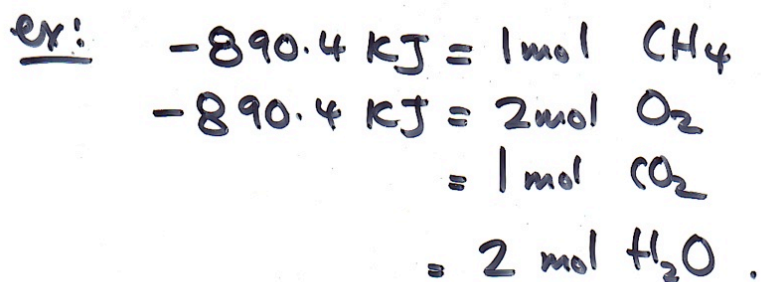 ex: -890.4 KJ = 1 mol CH₄
-890.4 KJ = 2 mol O₂
= 1 mol CO₂
= 2 mol H₂O.